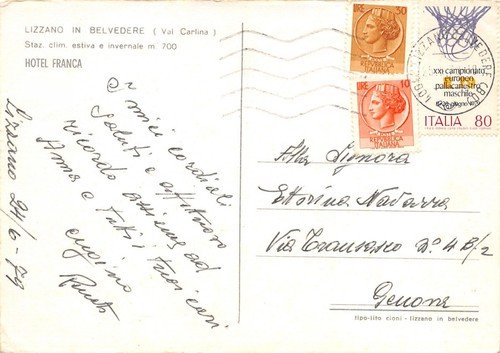 LIZZANO IN BELVEDERE ( Val Carlina )
Staz. clim. estiva e invernale m. 700
HOTEL FRANCA
Lizzano 24/6-79
I miei cordiali
saluti e affettuoso
ricordo assieme ad
Anna e tutti i tuoi cari
cugino
LIRE 30
REPUBBLICA
ITALIANA
LIRE 10
REPUBBLICA
ITALIANA
XXI campionato
europeo
pallacanestro
maschile
ITALIA 80
Gent.ma Signora
Ettorina Navarra
Via
N° 4 B/2
Genova
tipo-lito cioni - lizzano in belvedere